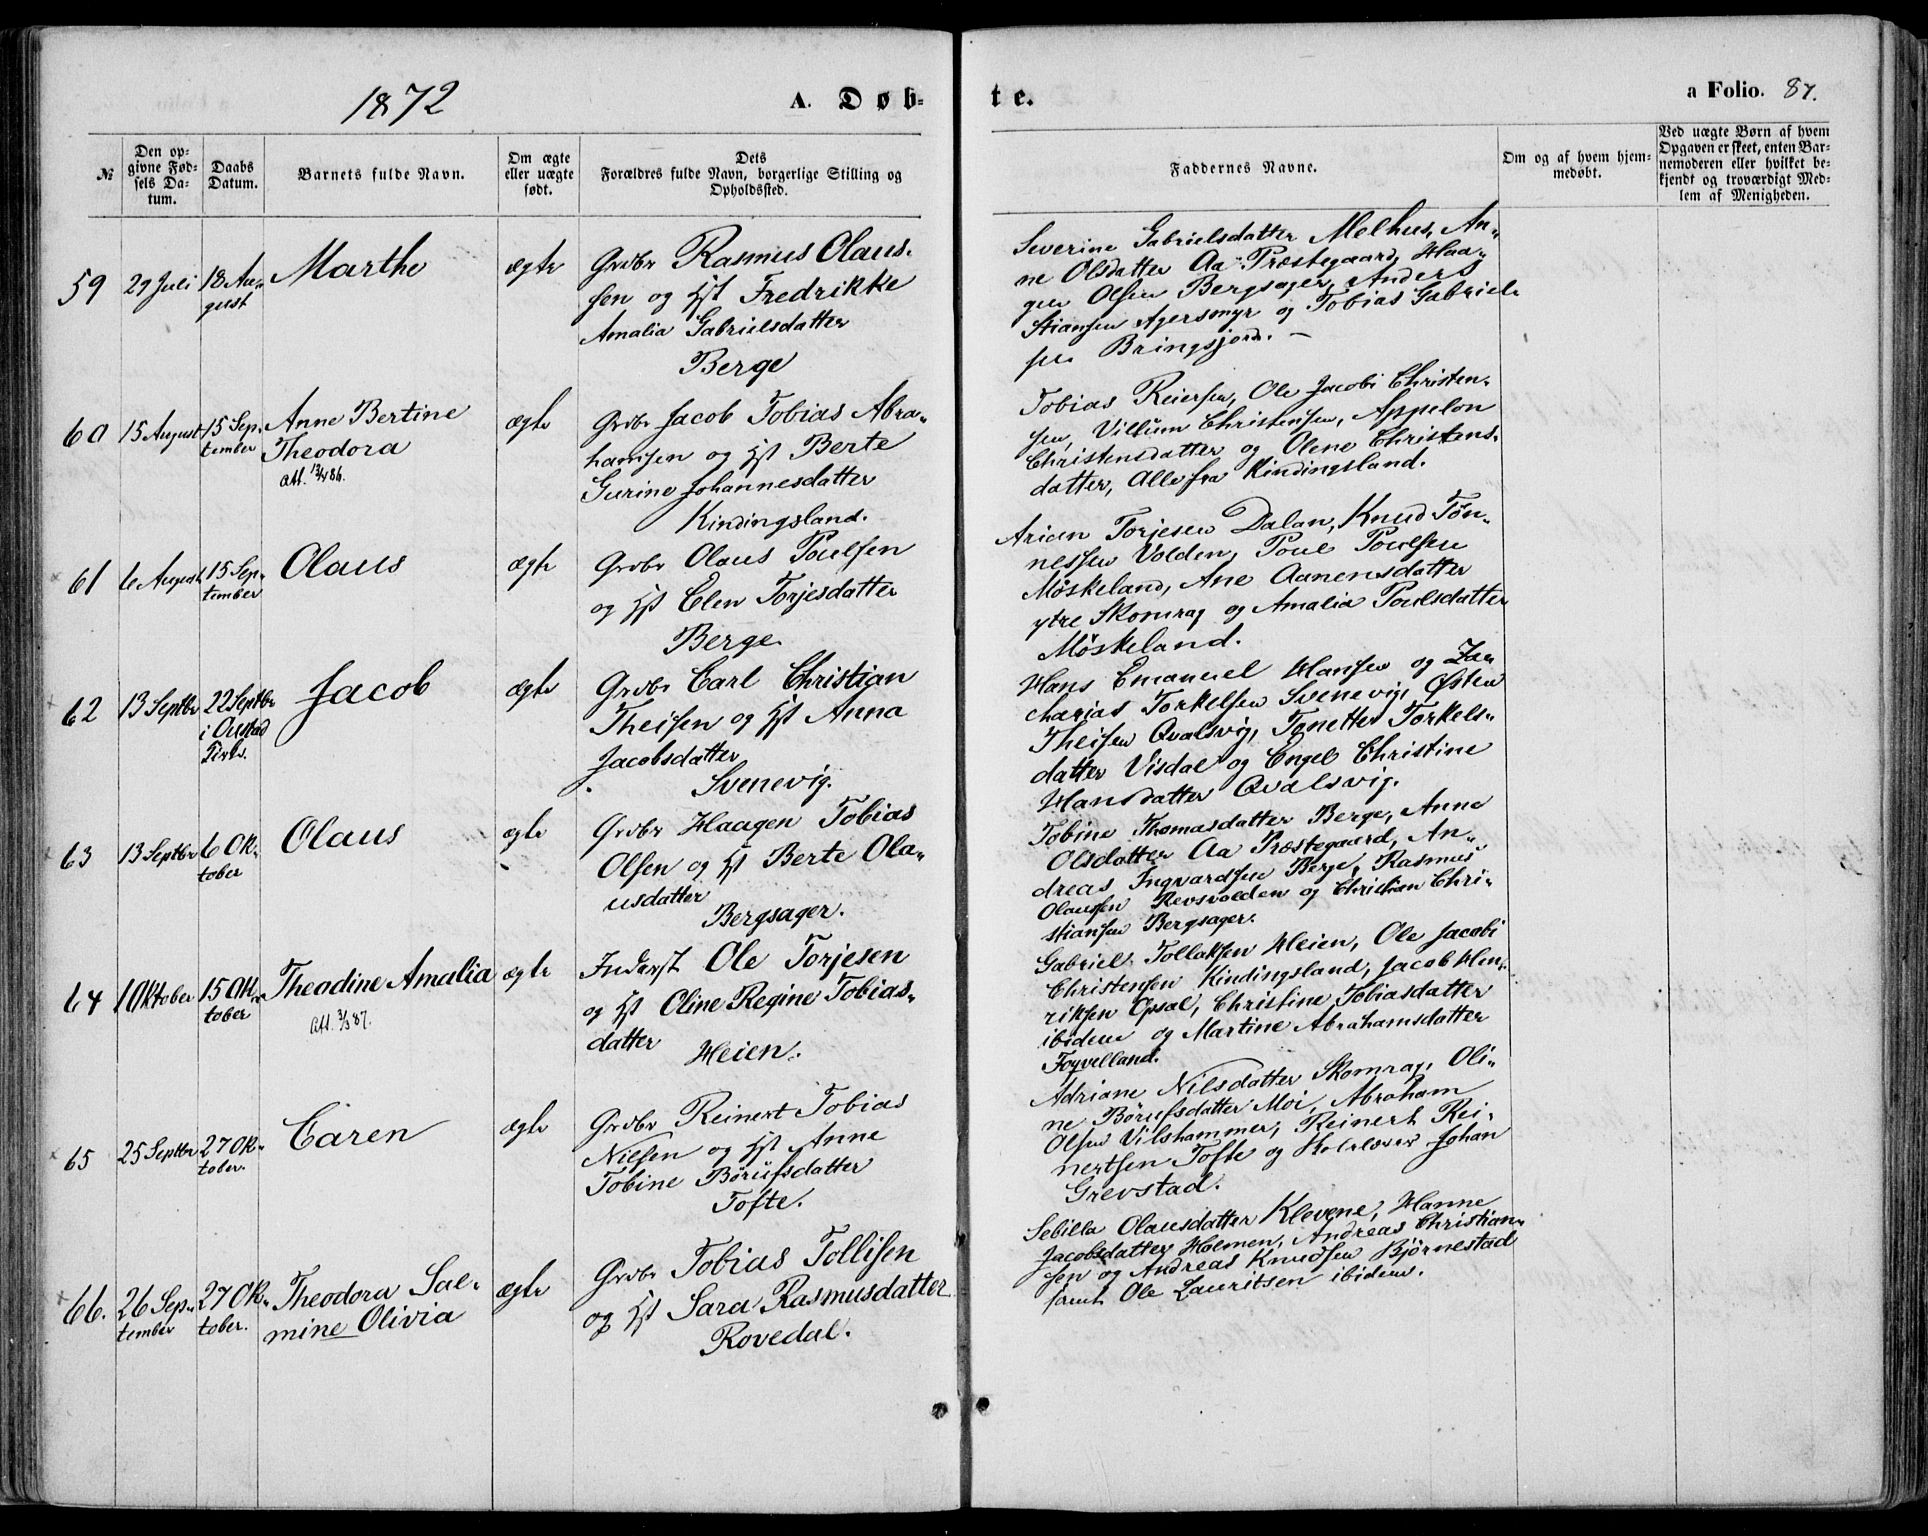 1872
A. Døb-
te.
a Folio. 87.
№
Den op-
givne Fød-
sels Da-
tum.
Daabs
Datum.
Barnets fulde Navn.
Om ægte
eller uægte
født.
Dets
Forældres fulde Navn, borgerlige Stilling og
Opholdssted.
Faddernes Navne.
Om og af hvem hjem-
medøbt.
Ved uægte Børn af hvem
Opgaven er skeet, enten Bar-
nemoderen eller hvilket be-
kjendt og troværdigt Med-
lem af Menigheden.
59
29 Juli
18 Au-
gust
Marthe
ægte
Grdbr Rasmus Olaus-
sen og Hst Fredrikke
Amalia Gabrielsdatter
Berge
Severine Gabrielsdatter Melhus, An-
ne Olsdatter Aa Præstegaard, Haa-
gen Olsen Bergsager, Anders
Stiansen Agersmyr og Tobias Gabriel-
sen Bringsjord. –
60
15 August
15 Sep-
tember
Anne Bertine
Theodora
Att. 13/4 86.
ægte
Grdbr Jacob Tobias Abra-
hamsen og Hst Berte
Gurine Johannesdatter
Kindingsland.
Tobias Reiersen, Ole Jacobi Christen-
sen, Villum Christensen, Appelon
Christensdatter og Olene Christens-
datter, Alle fra Kindingsland.
61
6 August
15 Sep-
tember
Olaus
ægte
Grdbr Olaus Poulsen
og Hst Elen Torjesdatter
Berge
Arian Torjesen Dalan, Knud Tøn-
nessen Volden, Poul Poulsen
Møskeland, Ane Aanensdatter
ytre Skomrag og Amalia Poulsdatter
Møskeland.
62
13 Septbr
22 Septbr
i Austad
Kirke.
Jacob
ægte
Grdbr Carl Christian
Theisen og Hst Anna
Jacobsdatter
Svenevig.
Hans Emanuel Hansen og Za-
charias Torkelsen Svenevig, Østen
Theisen Qvalsvig, Tonette Torkels-
datter Visdal og Engel Christine
Hansdatter Qvalsvig.
63
13 Septbr
6 Ok-
tober
Olaus
ægte
Grdbr Haagen Tobias
Olsen og Hst Berte Ola-
usdatter
Bergsager.
Tobine Thomasdatter Berge, Anne
Olsdatter Aa Præstegaard, An-
dreas Ingvardsen Berge, Rasmus
Olaussen Revsvolden og Christian Chri-
stiansen Bergsager.
64
1 Oktober
15 Ok-
tober
Theodine Amalia
Att. 3/3 87.
ægte
Inderst Ole Torjesen
og Hst Oline Regine Tobias-
datter
Heien.
Gabriel Tollaksen Heien, Ole Jacobi
Christensen Kindingsland, Jacob Hen-
riksen Opsal, Christine Tobiasdatter
ibidem og Martine Abrahamsdatter
Foyvelland.
65
25 Septbr
27 Ok-
tober.
Caren
ægte
Grdbr Reinert Tobias
Nielsen og Hst Anne
Tobine Børufsdatter
Tofte.
Adriane Nilsdatter Skomrag, Oli-
ne Børufsdatter Moi, Abraham
Olsen Vilshammer, Reinert Rei-
nertsen Tofte og Skolelærer Johan
Grevstad.
66.
26 Sep-
tember
27 Ok-
tober.
Theodora Sal-
mine Olivia
ægte
Grdbr Tobias Tollisen
og Hst Sara Rasmusdatter
Rovedal.
Sebilla Olausdatter Klevene, Hanne
Jacobsdatter Holmen, Andreas Christian-
sen og Andreas Knudsen Bjørnestad
samt Ole Lauritsen ibidem.